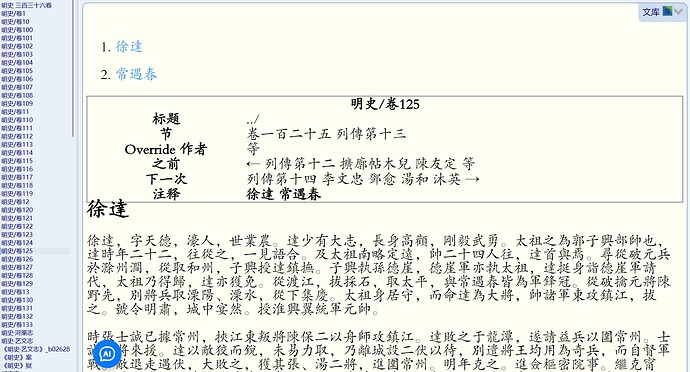 明史 三百三十六卷
明史/卷1
明史/卷10
明史/卷100
明史/卷101
明史/卷102
明史/卷103
明史/卷104
明史/卷105
明史/卷106
明史/卷107
明史/卷108
明史/卷109
明史/卷11
明史/卷110
明史/卷111
明史/卷112
明史/卷113
明史/卷114
明史/卷115
明史/卷116
明史/卷117
明史/卷118
明史/卷119
明史/卷12
明史/卷120
明史/卷121
明史/卷122
明史/卷123
明史/卷124
明史/卷125
明史/卷126
明史/卷127
明史/卷128
明史/卷129
明史/卷13
明史/卷130
明史/卷131
明史/卷132
明史/卷133
明史·河渠志
明史·艺文志
《明史·艺文志》_b02628
《明史》案
《明史》狱
文库
1. 徐達
2. 常遇春
明史/卷125
标题 ../
节 卷一百二十五 列傳第十三
Override 作者 等
之前 ← 列傳第十二 擴廓帖木兒 陳友定 等
下一次 列傳第十四 李文忠 鄧愈 湯和 沐英 →
注释 徐達 常遇春
徐達
徐達，字天德，濠人，世業農。達少有大志，長身高顴，剛毅武勇。太祖之為郭子興部帥也，
達時年二十二，往從之，一見語合。及太祖南略定遠，帥二十四人往，達首與焉。尋從破元兵
於滁州澗，從取和州，子興授達鎮撫。子興執孫德崖，德崖軍亦執太祖，達挺身詣德崖軍請
代，太祖乃得歸，達亦獲免。從渡江，拔採石，取太平，與常遇春皆為軍鋒冠。從破擒元將陳
野先，別將兵取溧陽、溧水，從下集慶。太祖身居守，而命達為大將，帥諸軍東攻鎮江，拔
之。號令明肅，城中宴然。授淮興翼統軍元帥。
時張士誠已據常州，挾江東叛將陳保二以舟師攻鎮江。達敗之于龍潭，遂請益兵以圍常州。士
誠 將來援。達以敵狡而銳，未易力取，乃離城設二伏以待，別遣將王均用為奇兵，而自督軍
戰 敵退走遇伏，大敗之，獲其張、湯二將，進圍常州。明年克之。進僉樞密院事。繼克甯
AI